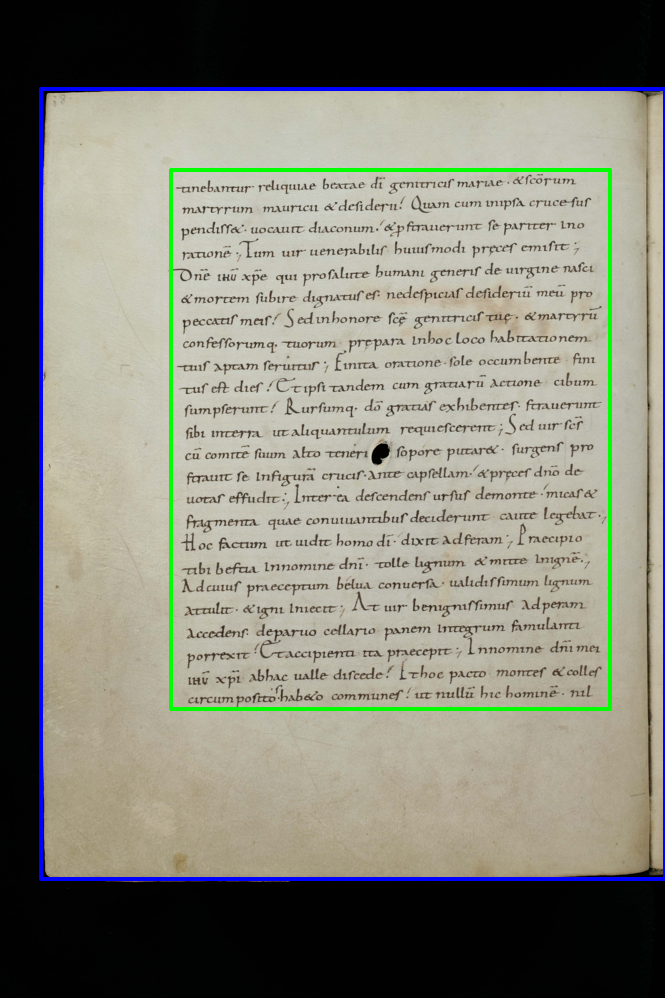 tinebantur reliquiae beatae dī genitricis mariae · & scōrum
martyrum mauricii & desiderii! Quam cum inipsa cruce sus
pendiss&· uocauit diaconum! & pstrauerunt se pariter ino
rationē ; Tum uir uenerabilis huiusmodi pręces emisit ;
Dn̄e ihū xp̄e qui prosalute humani generis de uirgine nasci
& mortem subire dignatus es· nedespicias desideriū meū pro
peccatis meis! Sed inhonore scę̄ genitricis tuę · & martyrū
confessorumq· tuorum prępara inhoc loco habitationem
tuis aptam seruitus ; Finita oratione · sole occumbente fini
tus est dies! Et ipsi tandem cum gratiarū actione cibum
sumpserunt! Rursumq· dō gratias exhibentes · strauerunt
sibi interra ut aliquantulum requiescerent ; Sed uir scs̄
cū comitē suum alto teneri sopore putar& · surgens pro
strauit se infigurā crucis · ante capsellam! & pręces dn̄o de
uotas effudit ; Interea descendens ursus demonte · micas &
fragmenta quae conuiuantibus deciderunt caute legebat ;
Hoc factum ut uidit homo dī · dixit ad feram ; Praecipio
tibi bestia innomine dn̄i · tolle lignum & mitte inignē ;
Ad cuius praeceptum belua conuersa · ualidissimum lignum
attulit · & igni iniecit ; At uir benignissimus ad peram
accedens · deparuo cellario panem integrum famulanti
porrexit! Et accipienti ita praecepit ; Innomine dn̄i mei
ihū xp̄i abhac ualle discede! Ithoc pacto montes & colles
circumpositos hab&o communes! ut nullū hic hominē · nil